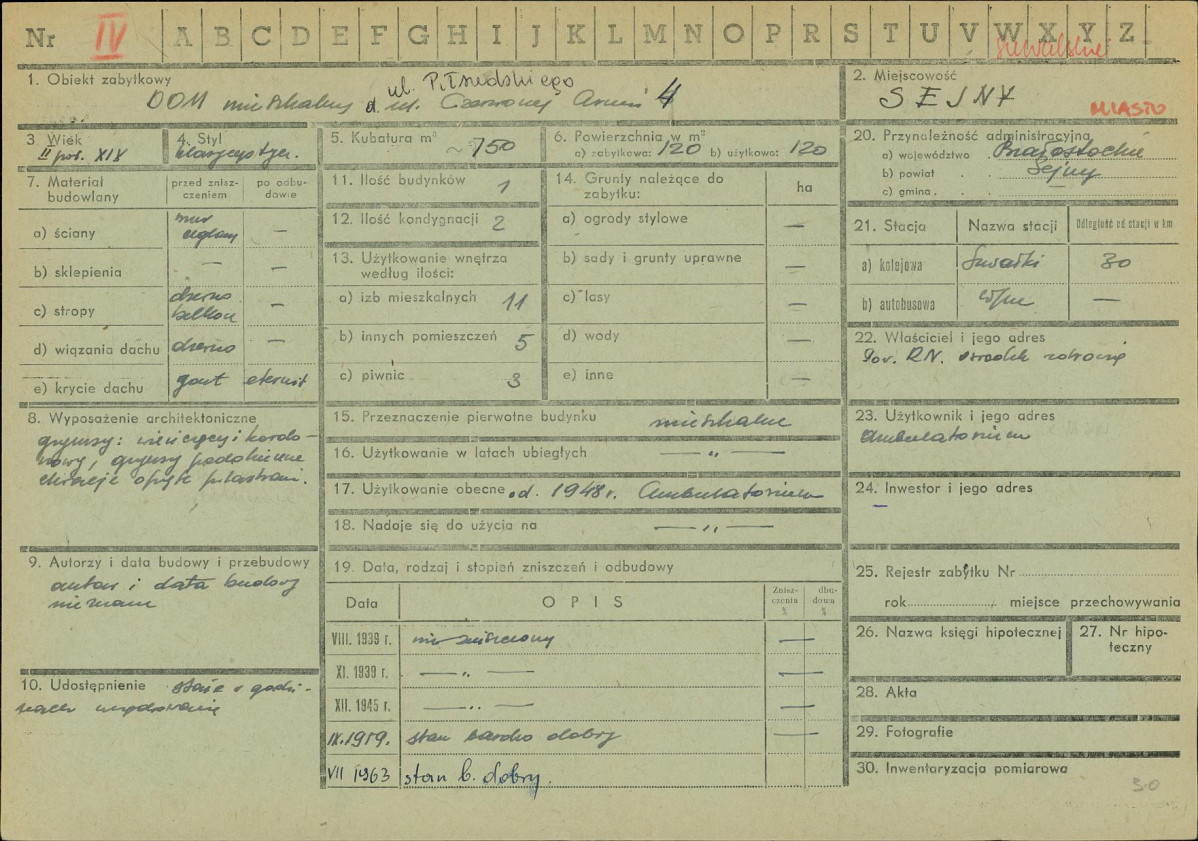 Nr IV A B C D E F G H I J K L M N O P R S T U V W X Y Z
Suwalskie
1. Obiekt zabytkowy
ul. Piłsudskiego
DOM mieszkalny d. ul. Czerwonej Armii 4
2. Miejscowość
SEJNY
MIASTO
3. Wiek
II poł. XIX
4. Styl
klasycystycz.
5. Kubatura m³ ~ 750
6. Powierzchnia w m²
a) zabytkowa: 120 b) użytkowa: 120
20. Przynależność administracyjna
a) województwo Białostockie
b) powiat Sejny
c) gmina
7. Materiał budowlany
przed zniszczeniem
po odbudowie
a) ściany mur ceglany —
b) sklepienia — —
c) stropy drewno belkow —
d) wiązania dachu drewno —
e) krycie dachu gont eternit
11. Ilość budynków 1
12. Ilość kondygnacji 2
13. Użytkowanie wnętrza
według ilości:
a) izb mieszkalnych 11
b) innych pomieszczeń 5
c) piwnic 3
14. Grunty należące do
zabytku:
ha
a) ogrody stylowe —
b) sady i grunty uprawne —
c) lasy —
d) wody —
e) inne —
21. Stacja
Nazwa stacji
Odległość od stacji w km
a) kolejowa Suwałki 30
b) autobusowa —
22. Właściciel i jego adres
Pow. R.N. Ośrodek zdrowia
8. Wyposażenie architektoniczne
gzymsy: wieńczący i kordo-
nowy, gzymsy podokienne
elewacje opięte pilastrami.
15. Przeznaczenie pierwotne budynku mieszkalne
16. Użytkowanie w latach ubiegłych — " —
17. Użytkowanie obecne od. 1948 r. Ambulatorium
18. Nadaje się do użycia na — " —
23. Użytkownik i jego adres
Ambulatorium
24. Inwestor i jego adres
—
9. Autorzy i data budowy i przebudowy
autor i data budowy
nieznane
10. Udostępnienie stałe w godzi-
nach urzędowania
19. Data, rodzaj i stopień zniszczeń i odbudowy
Data
OPIS
Zniszczenia %
dbudowa %
VIII. 1939 r. nie zniszczony —
XI. 1939 r. — " — —
XII. 1945 r. — " — —
IX.1959. stan bardzo dobry —
VII 1963 stan b. dobry.
25. Rejestr zabytku Nr
rok miejsce przechowywania
26. Nazwa księgi hipotecznej
27. Nr hipo-
teczny
28. Akta
29. Fotografie
30. Inwentaryzacja pomiarowa
30